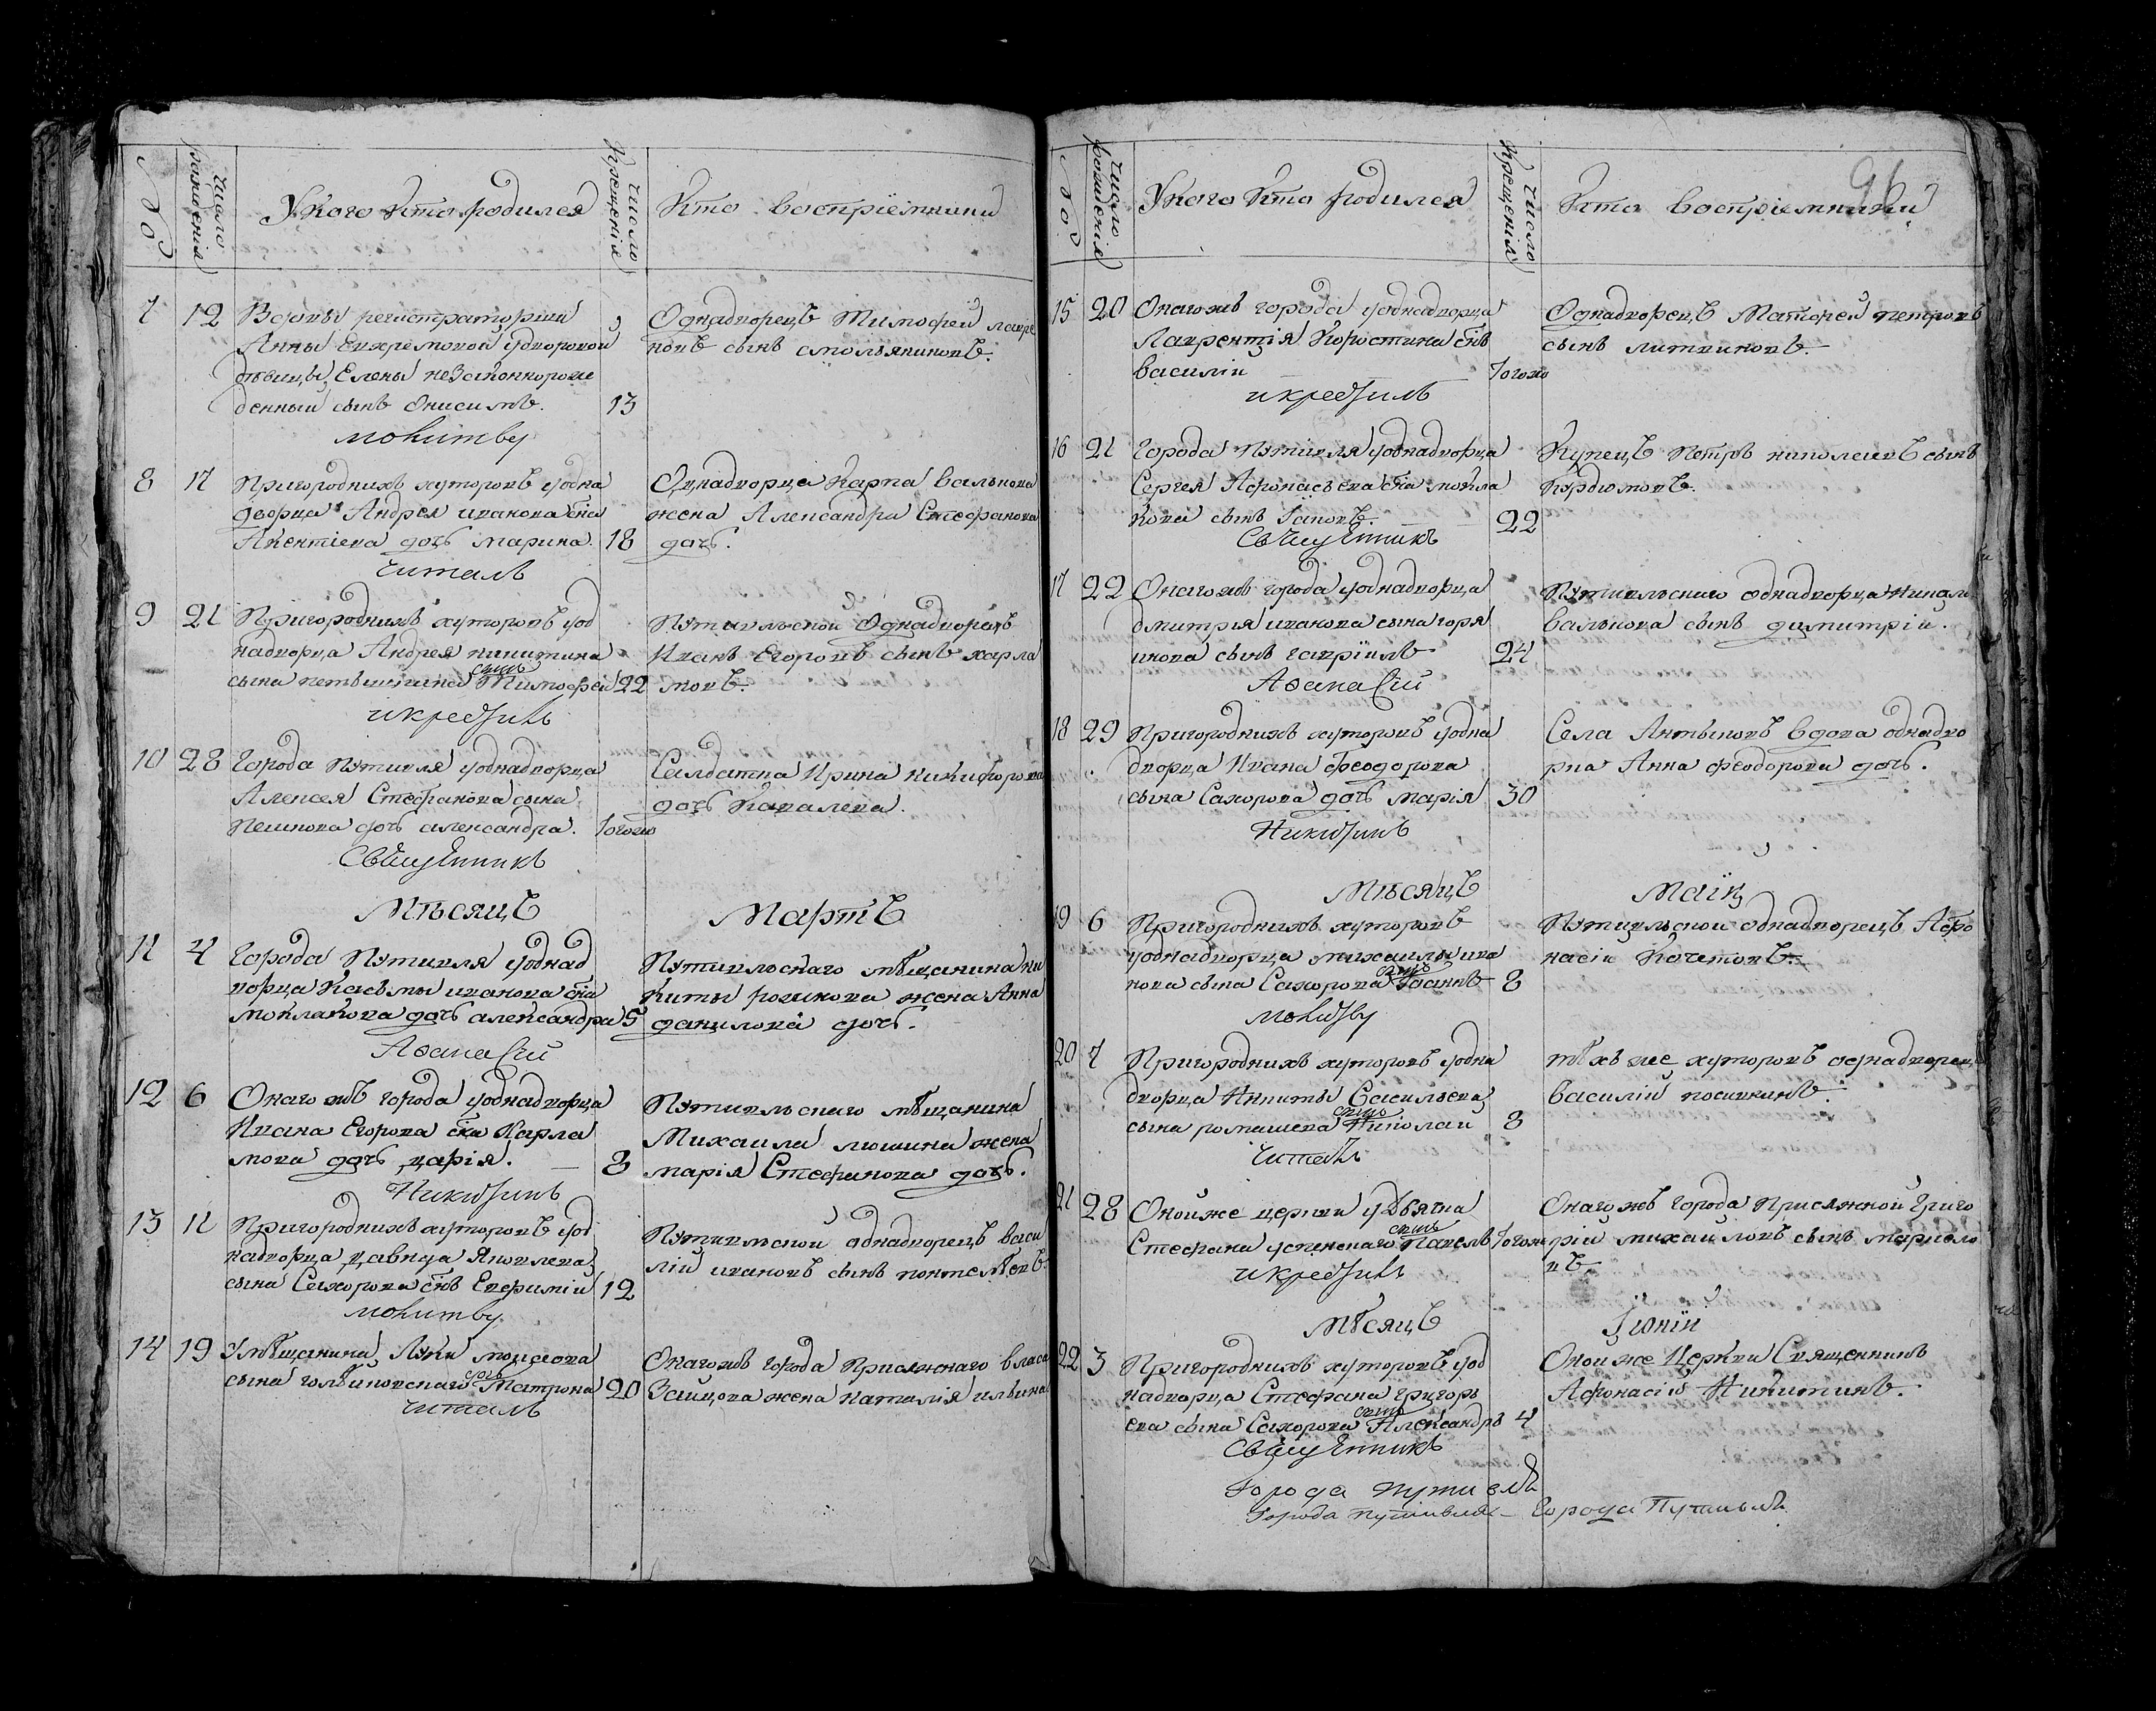 №
число рождения
У кого кто родился
число крещения
Кто восприемники
7 12 Вдовы регистраторши
Анны Ефремовой удворовой
девицы Елены незаконнорож
денный сынъ Онисимъ. 13
Однадворецъ Тимофей лавре
новъ сынъ смольяниновъ.
молитву
8 17 Пригороднихъ хуторовъ уодна
дворца Андрея иванова сна
Акентіева дочь марина. 18
Однадворца Карпа валькова
жена Александра Стефанова
дочь.
читалъ
9 21 Пригороднихъ хуторовъ уод
надворца Андрея никитина
сынъ
сына Тимофей 22
Путивльской Однадворецъ
Иванъ Егоровъ сынъ харла
мовъ.
и крестилъ
10 28 Города Путивля уоднадворца
Алексея Стефанова сына
Пешкова дочь александра. Тогож
Салдатка Ирина никифорова
дочь Кавалева.
Священникъ
Месяцъ Мартъ
11 4 Города Путивля уоднад
ворца Касьмы иванова сна
моклакова дочь александра 5
Путивльскаго мещанина ни
киты рожкова жена Анна
данилова дочь.
Афанасий
12 6 Онагожъ города уоднадворца
Ивана Егорова сна Харла
мова дочь дарія. 8
Путивльскаго мещанина
Михаила люшина жена
марія Стефанова дочь.
Никитинъ
13 11 Пригороднихъ хуторовъ уод
надворца давида Яковлева
сына Сахорова снъ Евфимій 12
Путивльской однадворецъ васи
лій ивановъ сынъ
молитву
14 19 Умещанина Луки моисеова
дочь
сына Матрона 20
Онагожъ города Присяжнаго власа
Зайцова жена наталія ильина
читалъ
№
число рождения
У кого кто родился
число крещенія
Кто восприемники
15 20 Онагожъ города уоднадворца
Лаврентія Коростина снъ
василій Тогож
Однадворецъ Матфей петровъ
сынъ литвиновъ.
и крестилъ
16 21 Города Путивля уоднадворца
Сергея Афонасьева сна мокла
кова сынъ Іаковъ. 22
Купецъ Петръ николаевъ сынъ
Курдюмовъ.
Священникъ
17 22 Онагожъ города уоднадворца
дмитрия иванова сына горя
инова сынъ гавріилъ 24
Путивльскаго однадворца
валькова сынъ димитрій.
Афанасий
18 29 Пригороднихъ хуторовъ уодна
дворца Ивана Феодорова
сына Сахорова дочь марія 30
Села вдова однадво
рка Анна феодорова дочь.
Никитинъ
Месяцъ Маій
19 6 Пригороднихъ хуторовъ
уоднадворца михаилы ива
сынъ
нова сына Сахорова Іоаннъ 8
Путивльской однадворецъ Афо
насій Кочетовъ.
молитву
20 7 Пригороднихъ хуторовъ уодна
дворца Никиты Васильева
сынъ
сына ромашева Николай 8
техъ же хуторовъ однадворец
василій посошкинъ.
читалъ
21 28 Онойже церкви удьячка
сынъ
Стефана успенскаго Павелъ Тогож
Онагожъ города Присяжной григо
рій михайловъ сынъ
въ
и крестилъ
месяцъ Іюній
22 3 Пригороднихъ хуторовъ уод
надворца Стефана григорь
сынъ
ева сына Сахорова Александръ 4
Онойже церкви Священникъ
Афонасій Никитинъ.
Священникъ
города путивля
города путивля — города Путивля